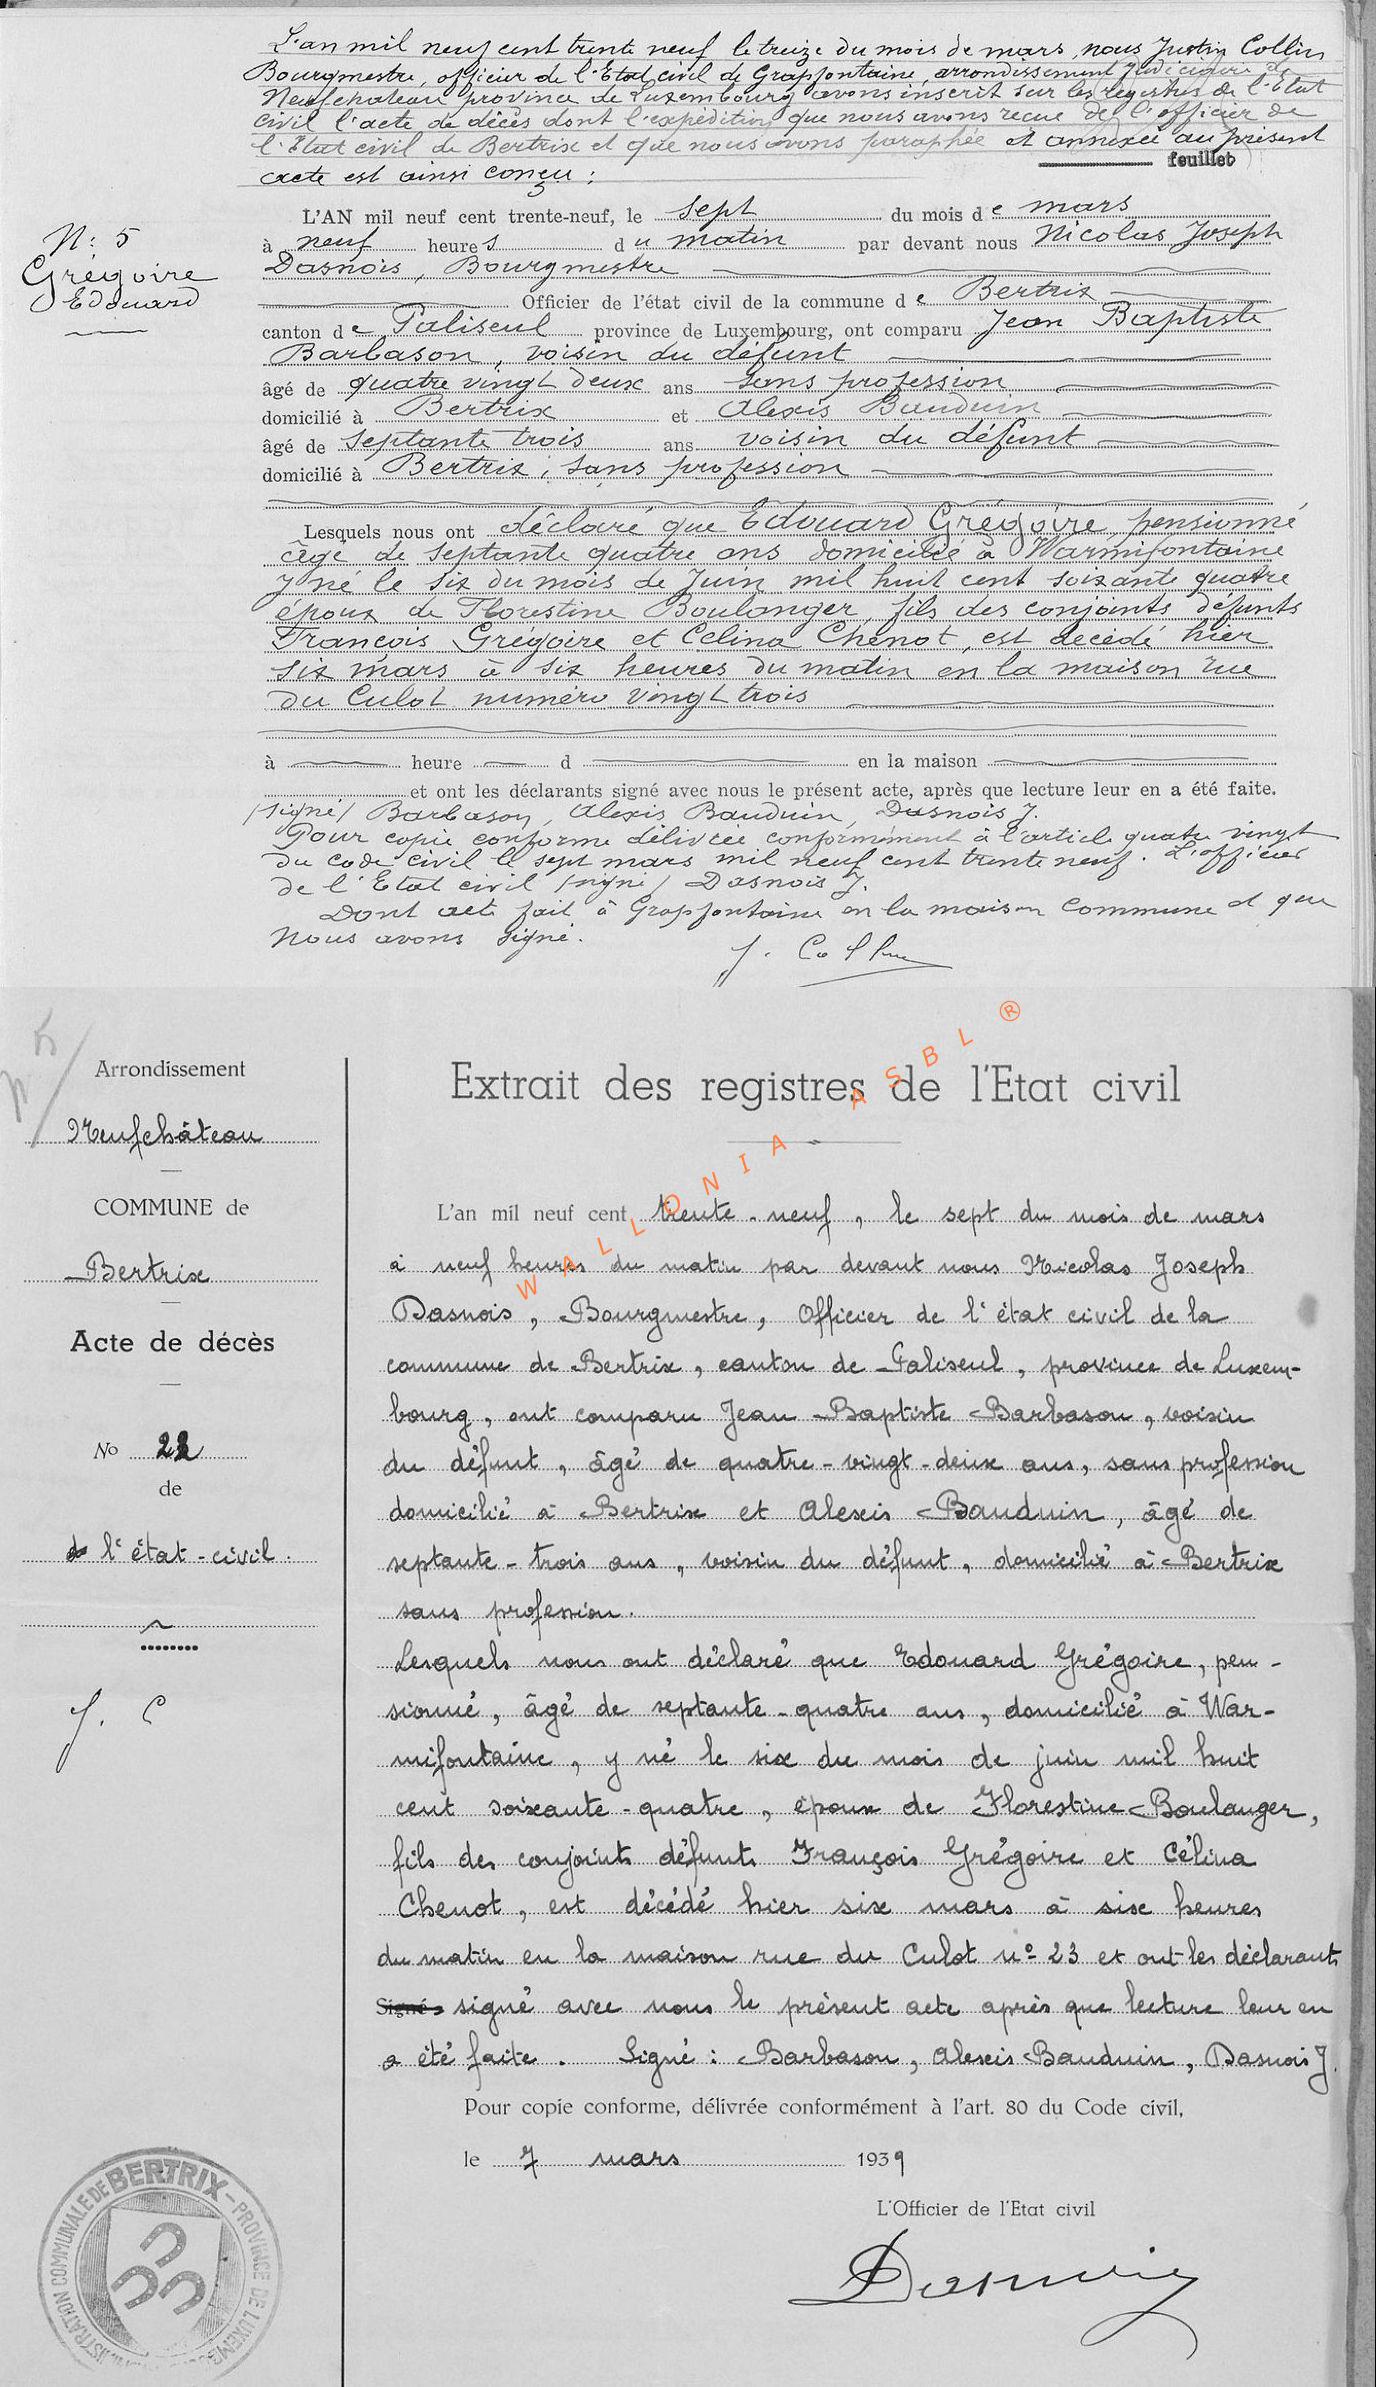 L'an mil neuf cent trente neuf le treize du mois de mars, nous Justin Collin
Bourgmestre, officier de l'Etat civil de Grapfontaine, arrondissement judiciaire de
Neufchateau province de Luxembourg avons inscrit sur les registres de l'Etat
civil l'acte de décès dont l'expédition que nous avons reçue de l'officier de
l'Etat civil de Bertrix et que nous avons paraphée et annexée au présent
feuillet
acte est ainsi conçu :
N: 5
Grégoire
Edouard
L'AN mil neuf cent trente-neuf, le sept du mois de mars
à neuf heures du matin par devant nous Nicolas Joseph
Dasnois, Bourgmestre
Officier de l'état civil de la commune de Bertrix
canton de Paliseul province de Luxembourg, ont comparu Jean Baptiste
Barbason, voisin du défunt
âgé de quatre vingt deux ans sans profession
domicilié à Bertrix et Alexis Bauduin
âgé de septante trois ans voisin du défunt
domicilié à Bertrix, sans profession
Lesquels nous ont déclaré que Edouard Grégoire, pensionné
âgé de septante quatre ans domicilié à Warmifontaine
y né le six du mois de Juin mil huit cent soixante quatre
époux de Florestine Boulanger, fils des conjoints défunts
François Grégoire et Célina Chenot, est décédé hier
six mars à six heures du matin en la maison rue
du Culot numéro vingt trois
à heure d en la maison
et ont les déclarants signé avec nous le présent acte, après que lecture leur en a été faite.
/signé/ Barbason, Alexis Bauduin, Dasnois J.
Pour copie conforme délivrée conformément à l'article quatre vingt
du code civil le sept mars mil neuf cent trente neuf. L'officier
de l'Etat civil /signé/ Dasnois J.
Dont acte fait à Grapfontaine en la maison commune et que
nous avons signé.
J. Collin
N 5
Arrondissement
Neufchâteau
COMMUNE de
Bertrix
Acte de décès
No 22
de
l'état-civil.
J. C
Extrait des registres de l'Etat civil
WALLONIA ASBL ®
L'an mil neuf cent trente-neuf, le sept du mois de mars
à neuf heures du matin par devant nous Nicolas Joseph
Dasnois, Bourgmestre, Officier de l'état civil de la
commune de Bertrix, canton de Paliseul, province de Luxem-
bourg, ont comparu Jean-Baptiste Barbason, voisin
du défunt, âgé de quatre-vingt-deux ans, sans profession
domicilié à Bertrix et Alexis Bauduin, âgé de
septante-trois ans, voisin du défunt, domicilié à Bertrix
sans profession.
Lesquels nous ont déclaré que Edouard Grégoire, pen-
sionné, âgé de septante-quatre ans, domicilié à War-
mifontaine, y né le six du mois de juin mil huit
cent soixante-quatre, époux de Florestine Boulanger,
fils des conjoints défunts François Grégoire et Célina
Chenot, est décédé hier six mars à six heures
du matin en la maison rue du Culot nº 23 et ont les déclarants
Signé, signé avec nous le présent acte après que lecture leur en
a été faite. Signé : Barbason, Alexis Bauduin, Dasnois J.
Pour copie conforme, délivrée conformément à l'art. 80 du Code civil,
le 7 mars 1939
L'Officier de l'Etat civil
Dasnois
ADMINISTRATION COMMUNALE DE BERTRIX - PROVINCE DE LUXEMBOURG